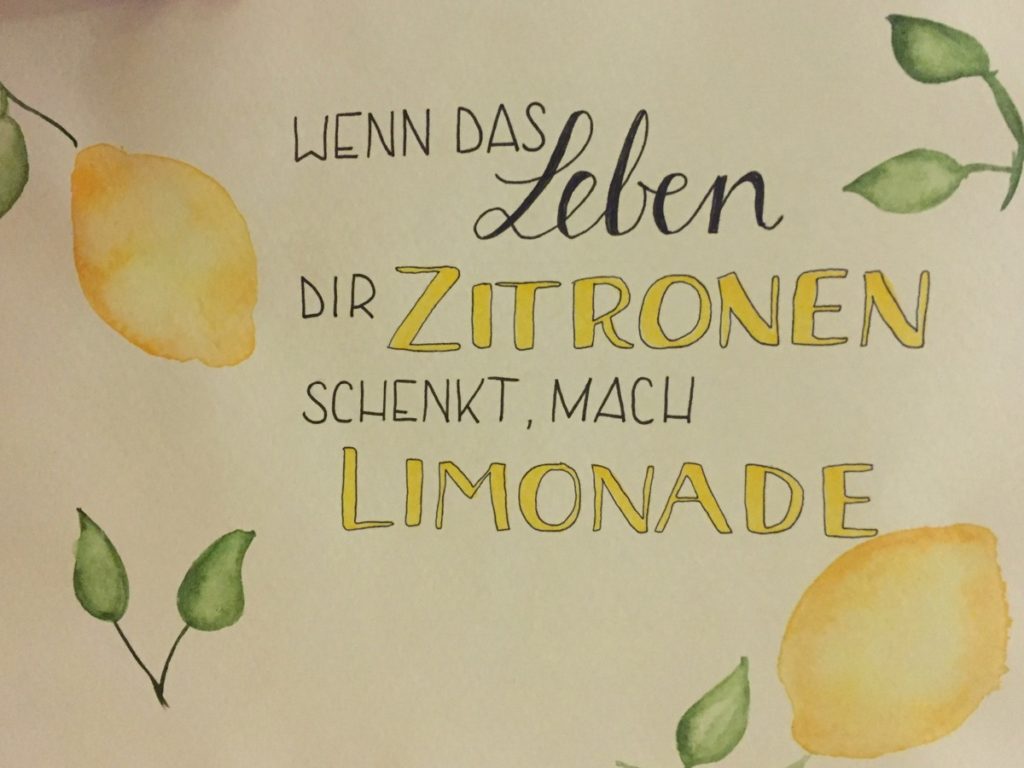 WENN DAS
Leben
DIR ZITRONEN
SCHENKT, MACH
LIMONADE